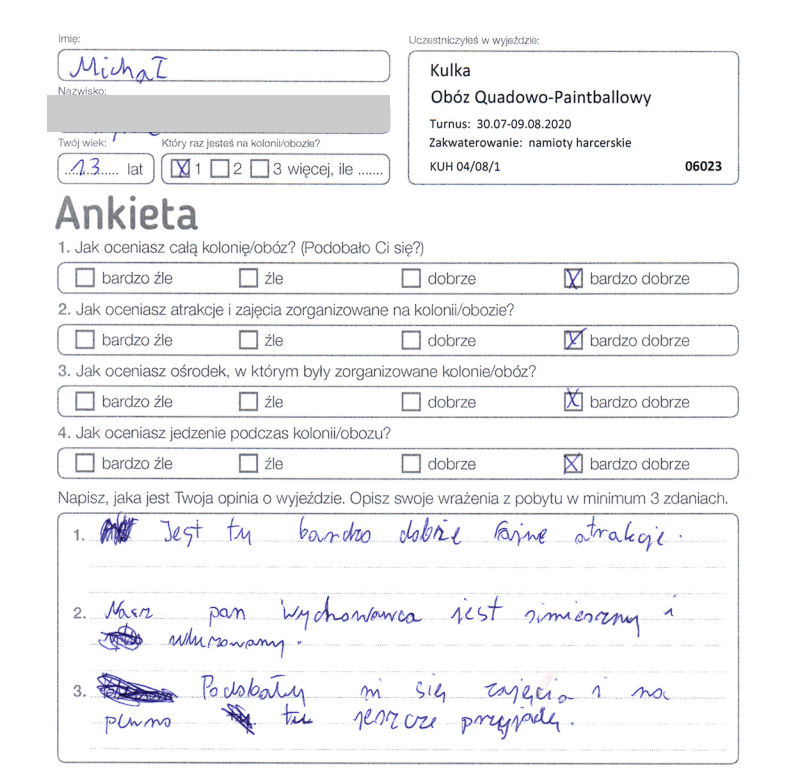 Imię:
Uczestniczyłeś w wyjeździe:
Michał
Kulka
Nazwisko:
Obóz Quadowo-Paintballowy
Turnus: 30.07-09.08.2020
Twój wiek: Który raz jesteś na kolonii/obozie?
Zakwaterowanie: namioty harcerskie
13 lat X 1 2 3 więcej, ile .......
KUH 04/08/1 06023
Ankieta
1. Jak oceniasz całą kolonię/obóz? (Podobało Ci się?)
bardzo źle źle dobrze X bardzo dobrze
2. Jak oceniasz atrakcje i zajęcia zorganizowane na kolonii/obozie?
bardzo źle źle dobrze X bardzo dobrze
3. Jak oceniasz ośrodek, w którym były zorganizowane kolonie/obóz?
bardzo źle źle dobrze X bardzo dobrze
4. Jak oceniasz jedzenie podczas kolonii/obozu?
bardzo źle źle dobrze X bardzo dobrze
Napisz, jaka jest Twoja opinia o wyjeździe. Opisz swoje wrażenia z pobytu w minimum 3 zdaniach.
1. Jest tu bardzo dobrze fajne atrakcje.
2. Nasz pan wychowawca jest simieszny i
wluzowany.
3. Podobały mi się zajęcia i na
pewno tu jeszcze przyjadę.